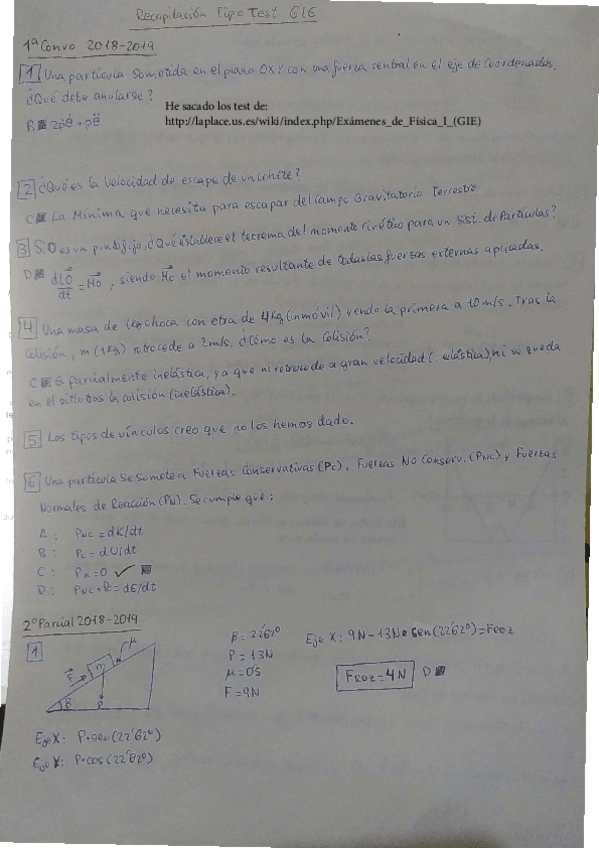 Recopilación Tipo Test GIE
1ª Convo 2018-2019
1 Una partícula sometida en el plano OXY con una fuerza central en el eje de coordenadas.
¿Qué debe anularse?
He sacado los test de:
http://laplace.us.es/wiki/index.php/Exámenes_de_Física_I_(GIE)
B 2ρ̇θ̇ + ρθ̈
2 ¿Qué es la velocidad de escape de un cohete?
C La Mínima que necesita para escapar del campo Gravitatorio Terrestre.
3 Si O es un punto fijo, ¿Qué establece el teorema del momento cinético para un Sist. de Partículas?
D dLO/dt = Mo, siendo Mo el momento resultante de todas las fuerzas externas aplicadas.
4 Una masa de 1kg choca con otra de 4kg (inmóvil) yendo la primera a 10 m/s. Tras la
colisión, m (1kg) retrocede a 2m/s. ¿Cómo es la colisión?
C Es parcialmente inelástica, ya que ni retrocede a gran velocidad ( elástica) ni se queda
en el sitio tras la colisión (inelástica).
5 Los tipos de vínculos creo que no los hemos dado.
6 Una partícula se somete a Fuerzas Conservativas (Pc), Fuerzas No Conserv. (PNC) y Fuerzas
Normales de Reacción (PN). Se cumple que:
A: PNC = dK/dt
B: Pc = dU/dt
C: Pn = 0 ✓
D: PNC + Pc = dE/dt
2º Parcial 2018-2019
1
F m μ β P
β = 22'62º
P = 13N
μ = 0'5
F = 9N
Eje X: 9N - 13N • sen(22'62º) = Froz
Froz = 4N D
Eje X: P • sen(22'62º)
Eje Y: P • cos(22'62º)